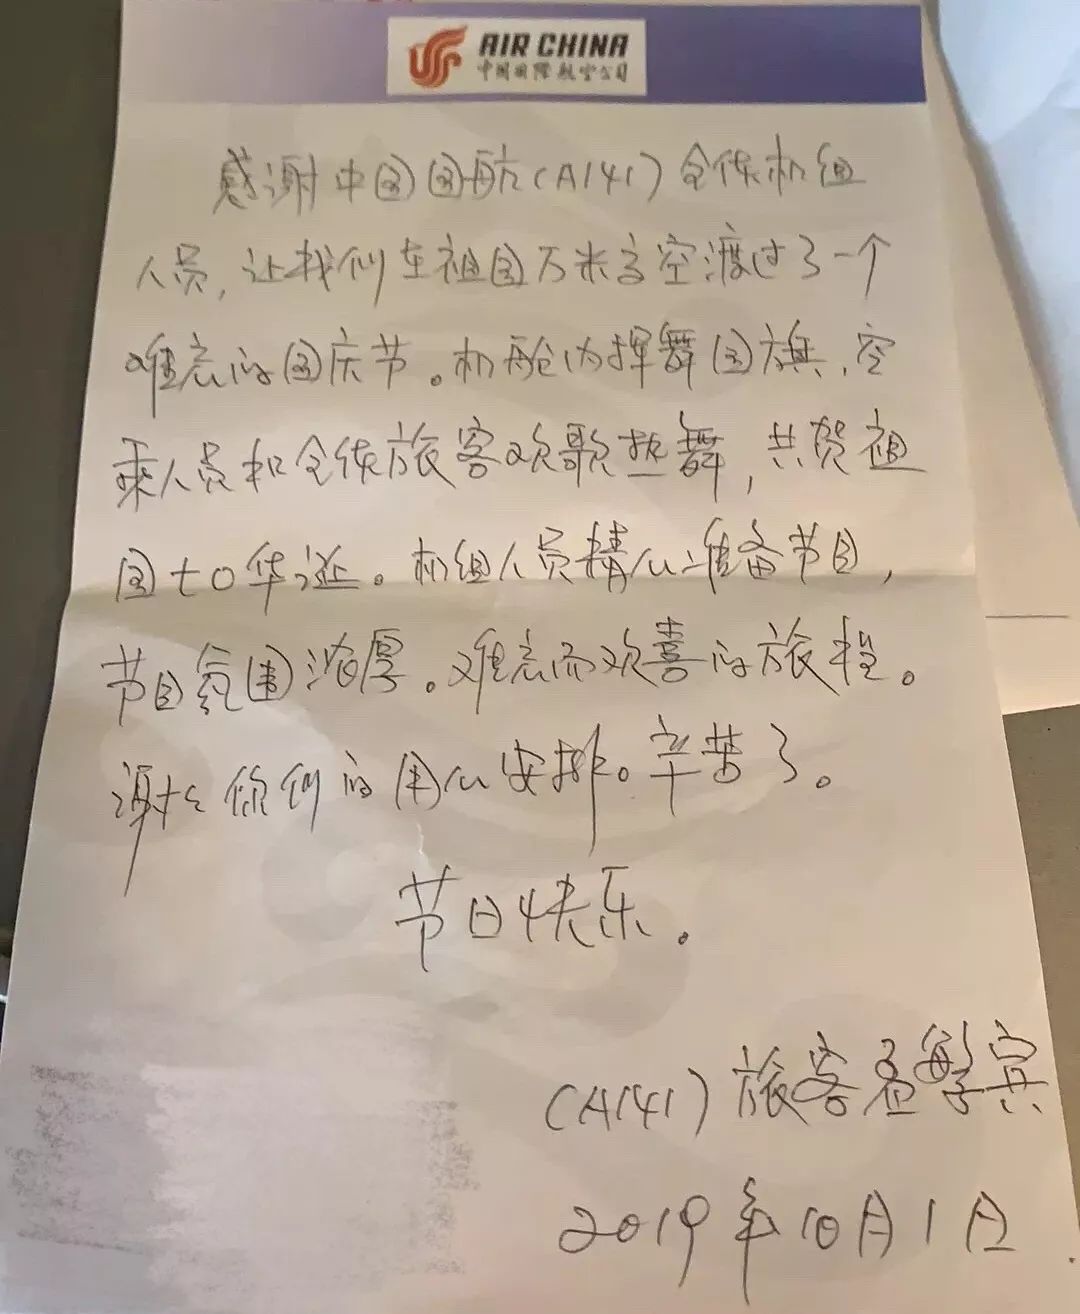 AIR CHINA
中国国际航空公司
感谢中国国航(CA141)全体机组
人员,让我们在祖国万米高空渡过了一个
难忘的国庆节。机舱内挥舞国旗,空
乘人员和全体旅客欢歌热舞,共贺祖
国七0华诞。机组人员精心准备节目,
节目氛围浓厚。难忘而欢喜的旅程。
谢谢你们的用心安排。辛苦了。
节日快乐。
(CA141)旅客孟繁宾
2019年10月1日